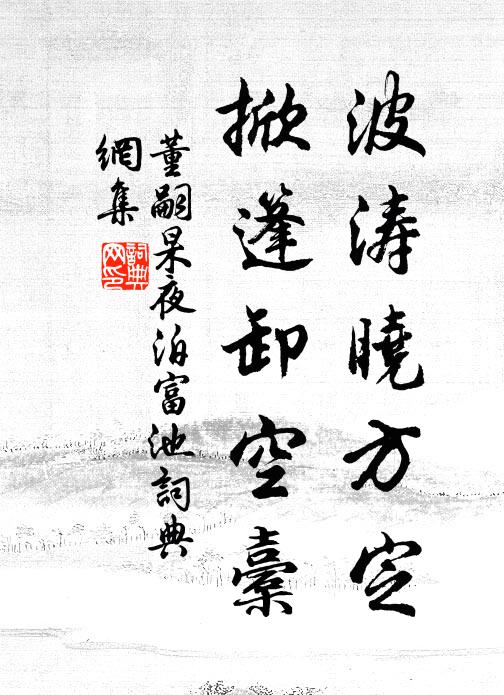 波涛曉方定
掀篷卸空橐
董嗣杲夜泊富池詞典
網集
詞典网印